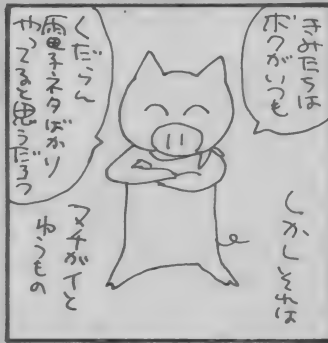 きみたちは
ボクがいつも
くだらん
電子ネタばかり
やってると思うだろう
しかしそれは
マチガイと
ゆうもの